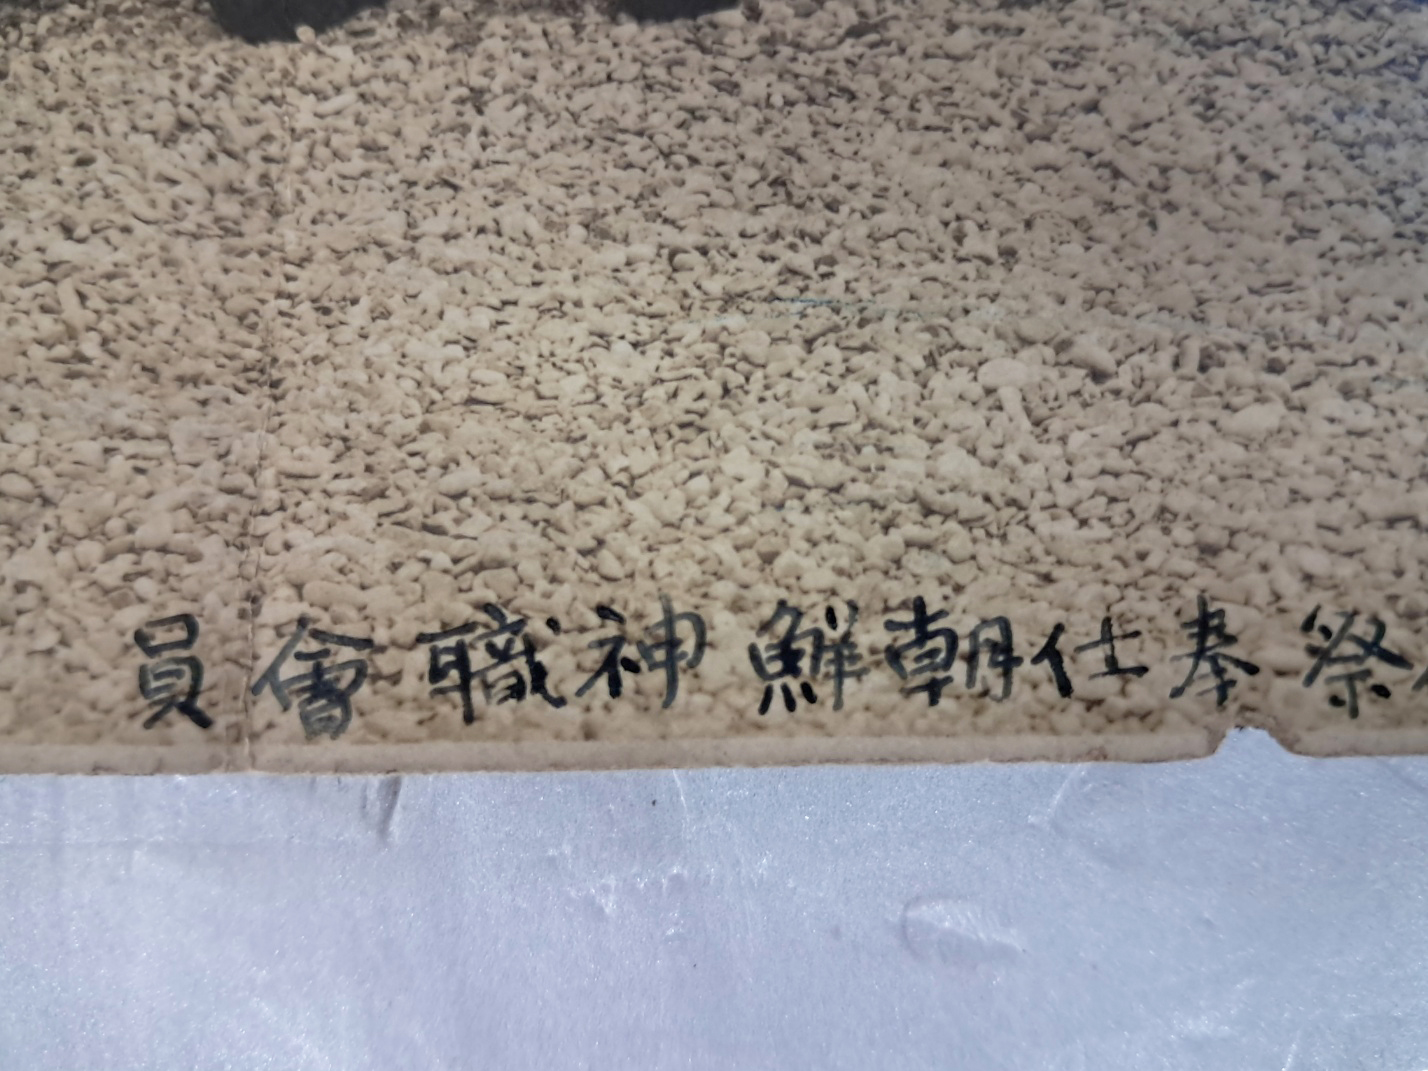 祭奉仕朝鮮神職會員